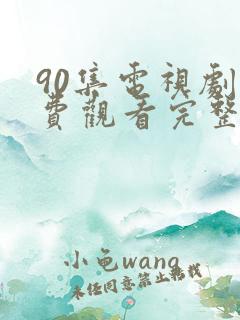 90集電視劇
費觀看完整
小龟wang
未经同意禁止转载